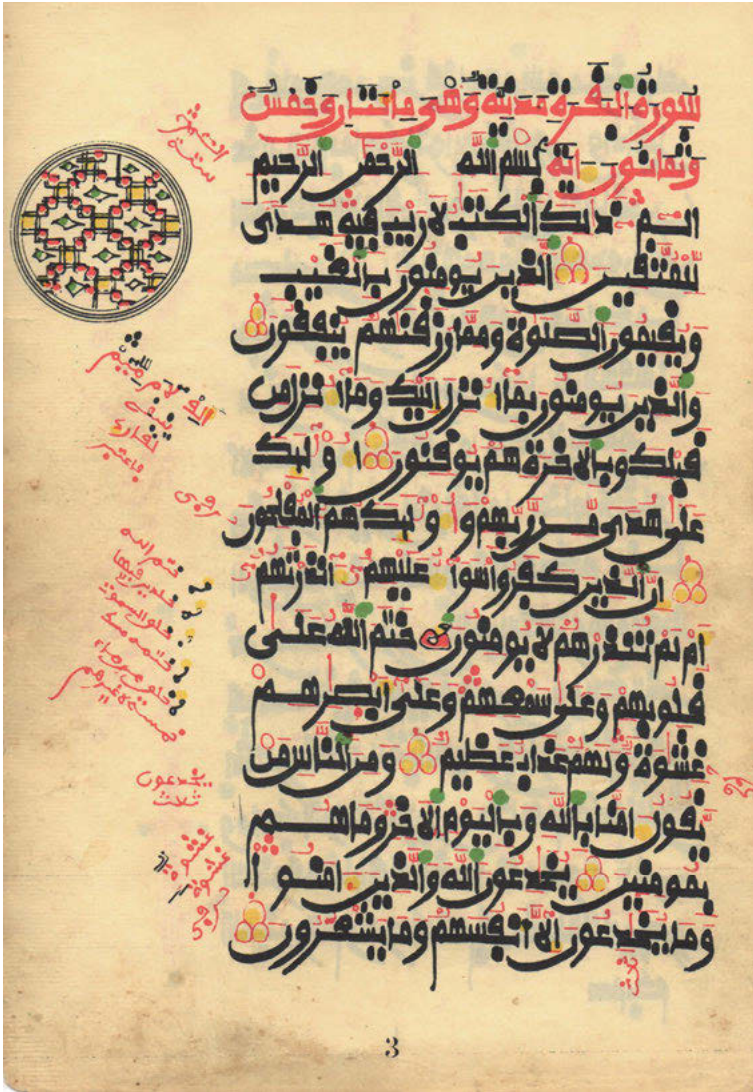 سورة البقرة مدنية وهي مأتان وخمس
وثمانون اية بسم الله الرحمن الرحيم
الم ذلك الكتب لا ريب فيه هدى
للمتقين الذين يومنون بالغيب
ويقيمون الصلوة ومما رزقنهم ينفقون
والذين يومنون بما انزل اليك وما انزل من
قبلك وبالاخرة هم يوقنون اوليك
على هدى من ربهم واوليك هم المفلحون
ان الذين كفروا سوا عليهم انذرتهم
ام لم تنذرهم لا يومنون ختم الله على
قلوبهم وعلى سمعهم وعلى ابصرهم
غشوة ولهم عذاب عظيم ومن الناس من
يقول امنا بالله وباليوم الاخر وما هم
بمومنين يخدعون الله والذين امنوا
وما يخدعون الا انفسهم وما يشعرون
يخدعون
ثلاث
غشوة
غشوة
3